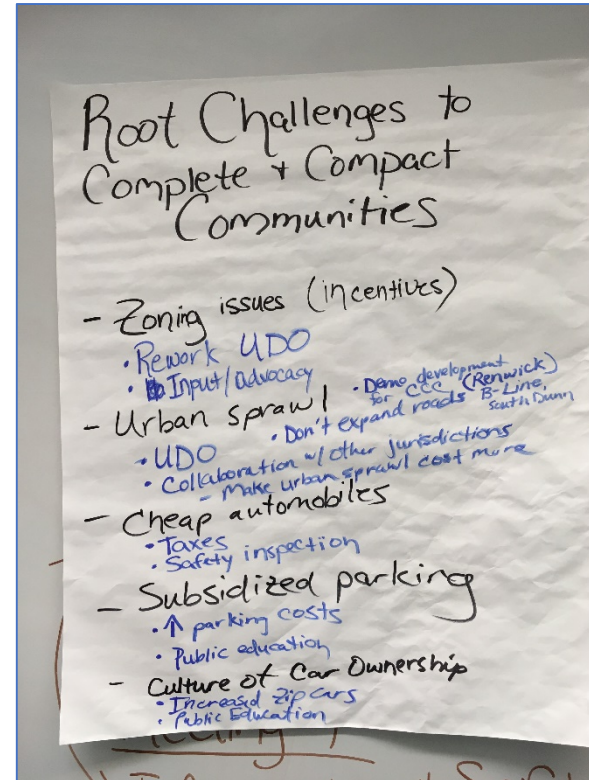 Root Challenges to
Complete + Compact
Communities
- Zoning issues (incentives)
• Rework UDO
• Input/advocacy
- Urban sprawl
• Demo development
for CCC (Renwick)
B-Line,
South Dunn
• Don't expand roads
• UDO
• Collaboration w/ other jurisdictions
- Make urban sprawl cost more
- Cheap automobiles
• Taxes
• Safety inspection
- Subsidized parking
• ↑ parking costs
• Public education
- Culture of Car Ownership
• Increased Zip cars
• Public Education